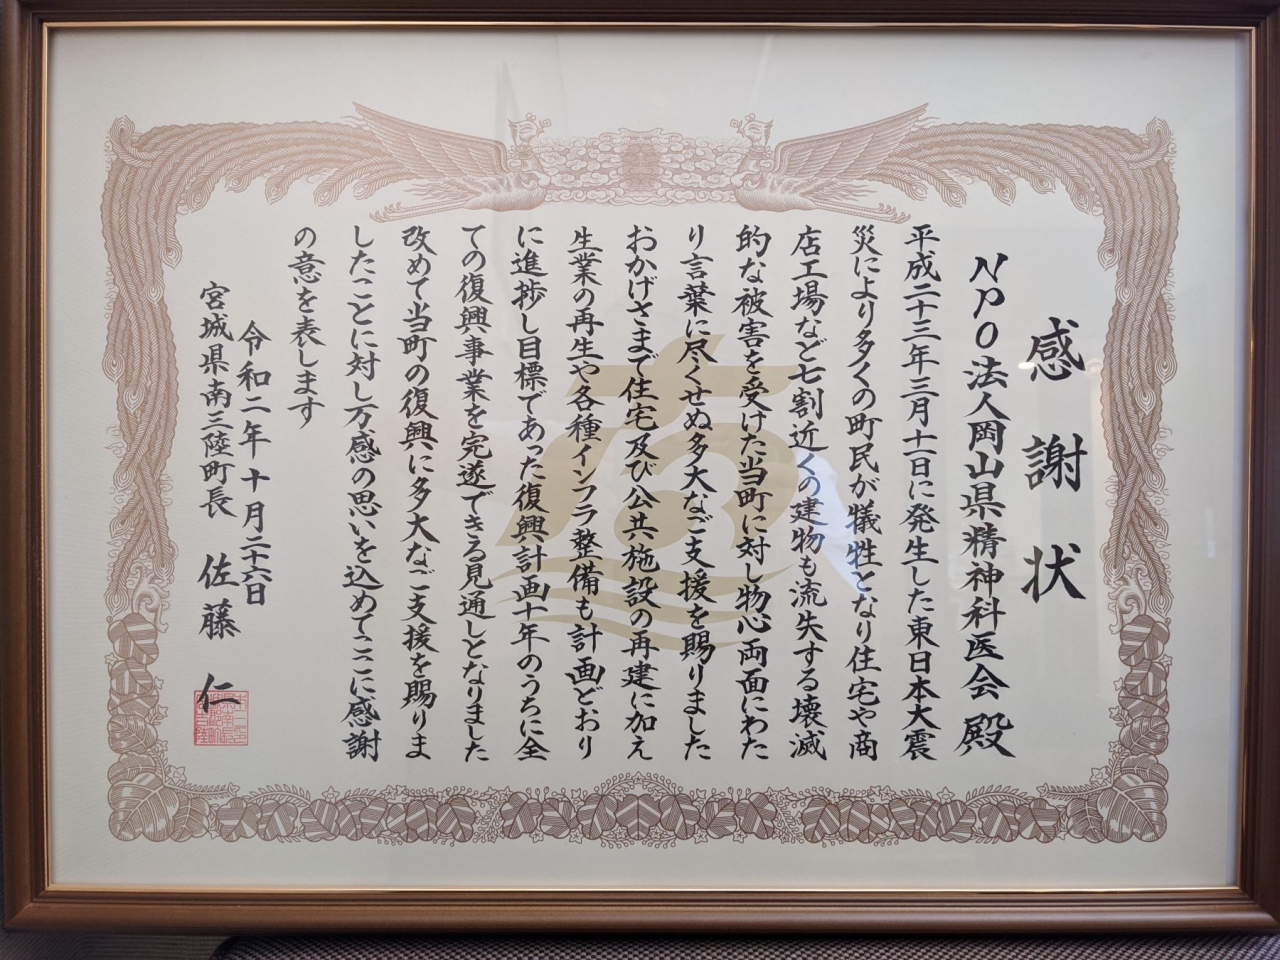 感謝状
NPO法人岡山県精神科医会殿
平成二十三年三月十一日に発生した東日本大震
災により多くの町民が犠牲となり住宅や商
店工場など七割近くの建物も流失する壊滅
的な被害を受けた当町に対し物心両面にわた
り言葉に尽くせぬ多大なご支援を賜りました
おかげさまで住宅及び公共施設の再建に加え
生業の再生や各種インフラ整備も計画どおり
に進捗し目標であった復興計画十年のうちに全
ての復興事業を完遂できる見通しとなりました
改めて当町の復興に多大なご支援を賜りま
したことに対し万感の思いを込めてここに感謝
の意を表します
令和二年十月二十六日
宮城県南三陸町長 佐藤 仁